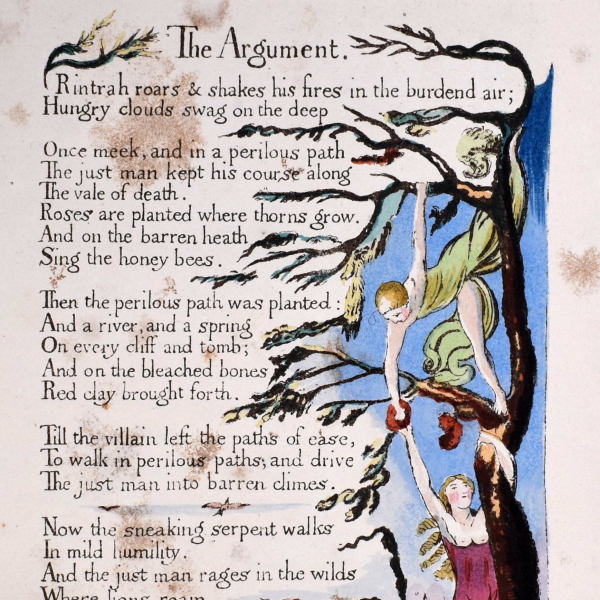 The Argument.
Rintrah roars & shakes his fires in the burdend air;
Hungry clouds swag on the deep
Once meek, and in a perilous path
The just man kept his course along
The vale of death.
Roses are planted where thorns grow.
And on the barren heath
Sing the honey bees.
Then the perilous path was planted:
And a river, and a spring
On every cliff and tomb;
And on the bleached bones
Red clay brought forth.
Till the villain left the paths of ease,
To walk in perilous paths, and drive
The just man into barren climes.
Now the sneaking serpent walks
In mild humility.
And the just man rages in the wilds
Where lions roam